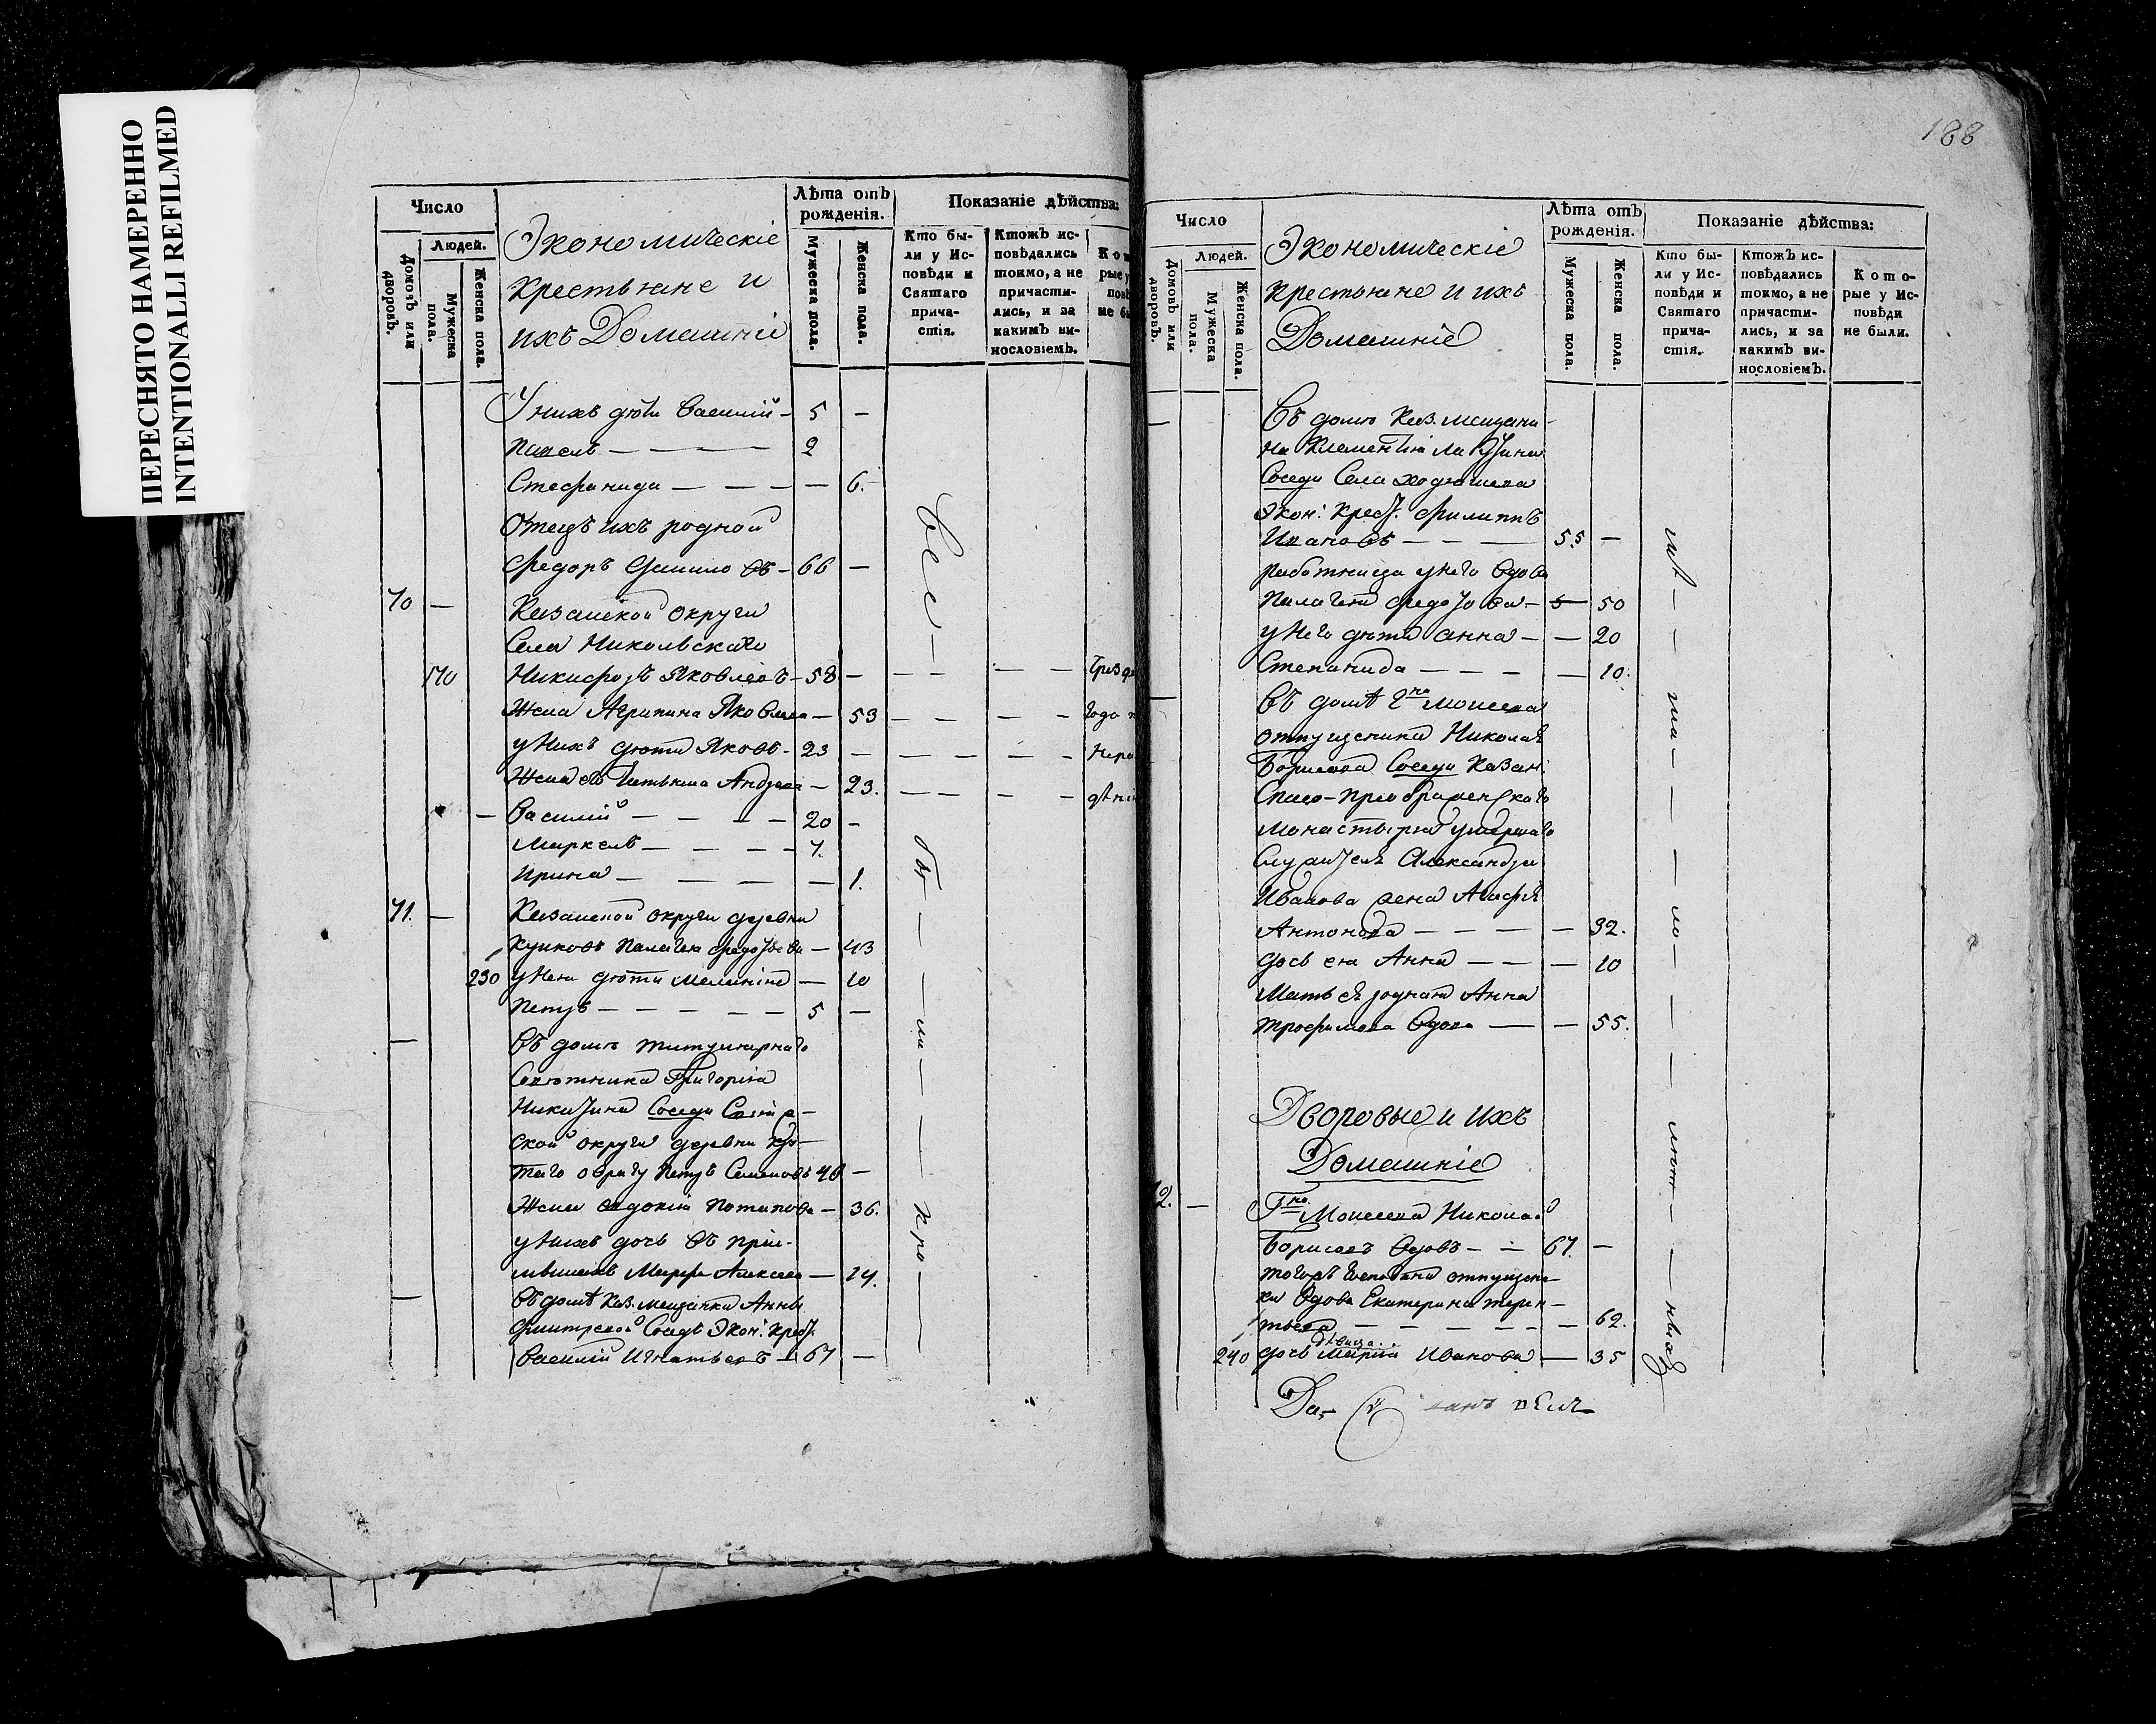 ПЕРЕСНЯТО НАМЕРЕННО
INTENTIONALLI REFILMED
Число
Людей.
Домовъ или дворовъ.
Мужеска пола.
Женска пола.
Экономическіе
крестьяне и
ихъ Домашніе
Лѣта отъ рожденія.
Мужеска пола.
Женска пола.
Показаніе дѣйства:
Кто бы-
ли у Ис-
повѣди и
Святаго
прича-
стія.
Ктожъ ис-
повѣдались
токмо, а не
причасти-
лись, и за
какимъ ви-
нословіемъ.
У нихъ дѣти Василій — 5 —
Павелъ — — — 2
Стефанида — — — — 6.
Отецъ ихъ родной
Федоръ Даниловъ — 66 —
70 — Казанской округи
Села Никольскаго
170 Никифоръ Яковлевъ — 58 — — — — —
Жена Агрипина Яковлева — 53 — — — —
у нихъ дѣти Яковъ — 23 — — — — —
Жена его Татьяна Андреева — 23. — — — —
— Василій — — — — 20 —
Маркелъ — — — — 7.
Ирина — — — — — 1.
71. — Казанской округи деревни
Куюковъ Палагея Федорова — 43
230 у нея дѣти Меланія — 10
Петръ — — — — — 5 —
— Въ домѣ титулярнаго
Совѣтника Григорія
Никитина Соседи Свіяж-
ской округи деревни Кру-
таго оврагу Петръ Семеновъ 46 —
Жена Евдокія Потапова — 36.
у нихъ дочь въ прій-
мышахъ Марфа Алексеева — 14.
— Въ домѣ Каз. мещанки Анны
Дмитревой Соседъ Экон: крест.
Василій Игнатьевъ — 67 —
188
Число
Людей.
Домовъ или дворовъ.
Мужеска пола.
Женска пола.
Экономическіе
крестьяне и ихъ
Домашніе
Лѣта отъ рожденія.
Мужеска пола.
Женска пола.
Показаніе дѣйства:
Кто бы-
ли у Ис-
повѣди и
Святаго
прича-
стія.
Ктожъ ис-
повѣдались
токмо, а не
причасти-
лись, и за
какимъ ви-
нословіемъ.
Кото-
рые у Ис-
повѣди
не были.
— Въ домѣ Каз. мещани-
на Клементія
Соседи Села Ходяшева
Экон: крест. Филиппъ
Ивановъ — — — 55 —
работница у него вдова
Палагея Федорова — — 50
у него дѣти Анна — — 20
Степанида — — — — 10.
— Въ домѣ Гна Моисеева
отпущенника Николая
Борисова Соседи Казан:
Спасо-Преображенскаго
монастыря умершаго
Служителя Александра
Иванова жена Агафья
Антонова — — — — 32.
дочь ея Анна — — — 10
Мать ея родная Анна
Трофимова Вдова — — 55.
Дворовые и ихъ
Домашніе
72. — Гна Моисеева Николай
Борисовъ Вдовъ — — 67. —
тогожъ Господина отпущен-
ка Вдова Екатерина Терен-
тьева — — — — — 62.
240 дочь девица Марія Иванова — 35